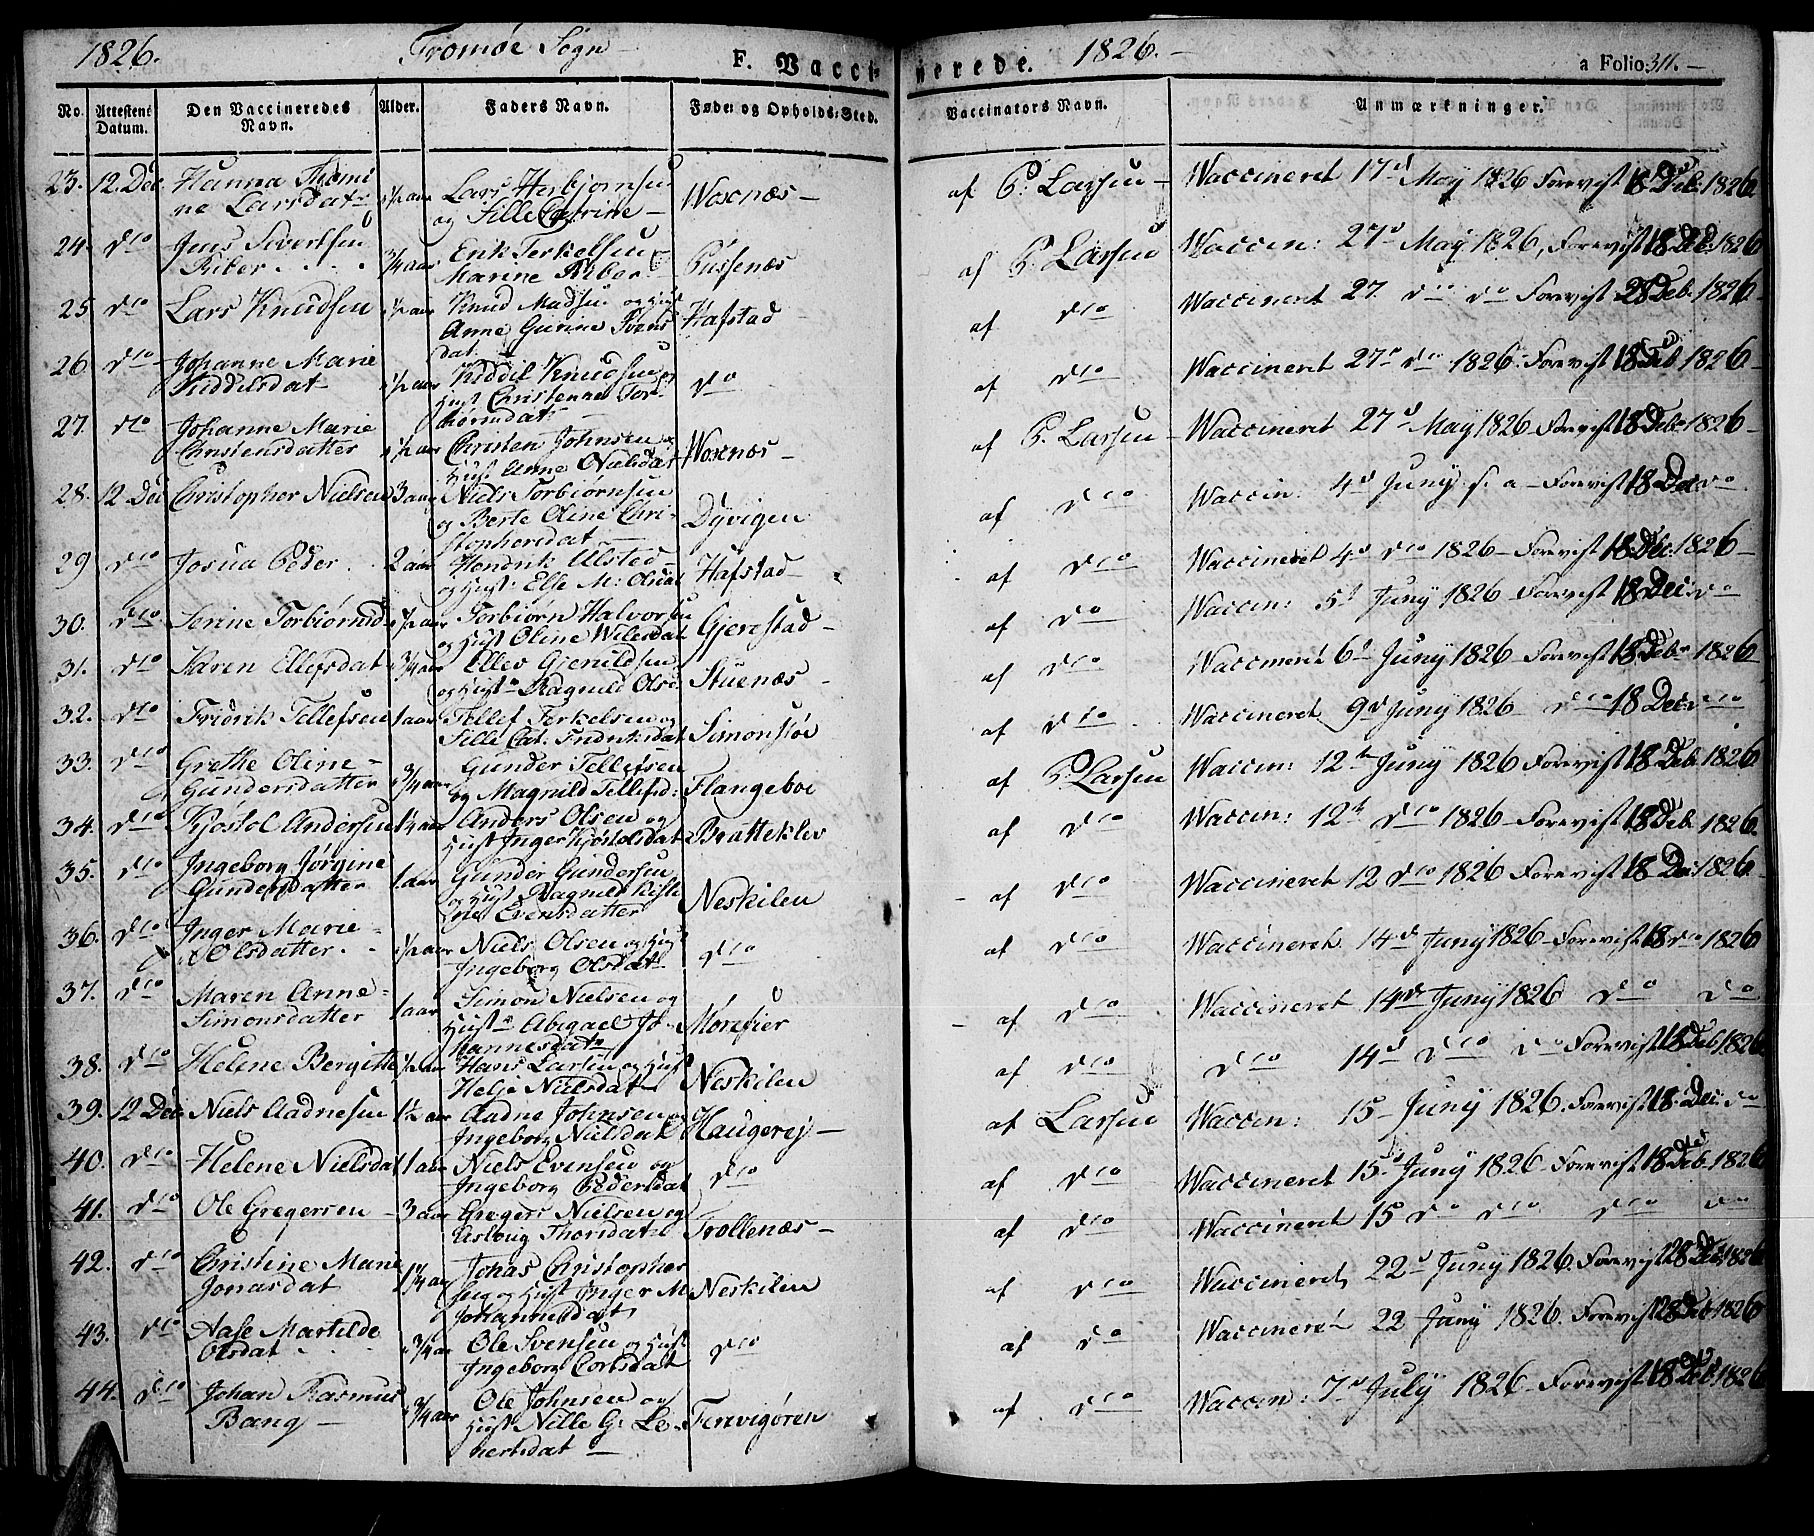 1826. Tromøe Sogn F. Vaccinerede. 1826. a Folio 311.
No. Attestens Datum. Den Vaccineredes Navn. Alder. Faders Navn. Føde- og Opholds-Sted. Vaccinators Navn. Anmærkninger.
23. 12. Dec. Hanna Thomi
ne Larsdatr 1½ aar Lars Herbjørnsen
og Sille Catrine Woxnæs af P. Larsen Waccineret 17d May 1826 Forevist 18 Deb. 1826
24. dto Jens Sivertsen
Riber ¾ aar Erik Terkelsen
Marine Riber Pussenæs af P. Larsen Waccin: 27d May 1826, Forevist 18 Deb. 1826
25 dto Lars Knudsen 1½ aar Knud Madsen og Hust
Anne Gurine Svens
dat. Hafstad af dto Waccineret 27. dto do Forevist 28 Deb. 1826
26 dto Johanne Marie
Kiddelsdat 1½ aar Kiddil Knudsen og
Hust Christenne Tor
biørnsdat do af dto Waccineret 27d do 1826 Forevist 18 Deb 1826
27. dto Johanne Marie
Christensdatter 1½ aar Christen Johnsen og
Hust Anne Nielsdat Woxnæs af P. Larsen Waccineret 27d May 1826 Forevist 18 Deb. 1826
28. 12 Dec Christopher Nielsen 3 aar Niels Torbiørnsen
og Berte Oline Chri-
stophersdat Dyvigen af dto Waccin: 4d Juny s. a Forevist 18 Dec. do
29 dto Josua Peder 2 aar Hendrik Ulsted
og Hust. Else M: Olsdat Hafstad af dto Waccineret 4d dto 1826 Forevist 18 Dec. 1826
30. dto Serine Torbiørnsd 1½ aar Torbiørn Halvorsen
og Hust Oline Wilesdat Gjerestad af do Waccin: 5t Juny 1826 Forevist 18 Dec. do
31. dto Karen Ellefsdat ¾ aar Ellev Gjeruldsen
og Hustr Ragnild Olsd. Stuenæs af do Waccineret 6d Juny 1826 Forevist 18 Deb 1826
32. dto Fridrik Tellefsen 1 aar Tellef Terkelsen og
Sille Cat. Fridriksdat Simonstøe af dto Waccineret 9d Juny 1826 dto 18 Dec. dto
33. dto Grethe Oline
Gundersdatter ¾ aar Gunder Tellefsen
og Magnild Tellefsd: Flangeboe af P. Larsen Waccin: 12te Juny 1826 Forevist 18 Deb. 1826
34. dto Kjøstol Andersen 1¼ aar Anders Olsen og
Hust Inger Kjøstolsdat Bratteklev af dto Waccin: 12te dto 1826 Forevist 18 Deb. 1826
35. dto Ingeborg Jørgine
Gundersdatter 1 aar Gunder Gundersen
og Hust Ragnild Kisti
ne Evensdatter Neskilen af dto Waccineret 12 dto 1826 Forevist 18 Dec. 1826
36. dto Inger Marie
Olsdatter 1½ aar Niels Olsen og Hust
Ingeborg Olsdatr dto af dto Waccineret 14d Juny 1826 Forevist 18 dto 1826
37. dto Maren Anne
Simonsdatter 1 aar Simon Nielsen og
Hustr Abigael Jo-
hannesdatr Morefier af dto Waccineret 14d Juny 1826 dto do
38. dto Helene Bergitte ½ aar Hans Larsen og Hust
Helje Nielsdat Neskilen af dto dto 14d dto do Forevist 18 Deb 1826
39. 12 Dec Niels Aadnesen 1½ aar Aadne Johnsen og
Ingeborg Nielsdat Haugerej af Larsen Waccin: 15 Juny 1826. Forevist 18 Dec. do
40. dto Helene Nielsdat 1 aar Niels Evensen og
Ingeborg Pedersdat do af dto Waccineret 15d Juny 1826 Forevist 18 Deb. 1826
41. dto Ole Gregersen 3 aar Gregers Nielsen og
Asloug Thorsdat Trollenæs af dto Waccineret 15 do dto dto do
42. dto Christine Marie
Jonasdat 1¼ aar Jonas Christopher
sen og Hust Inger M
Johannesdat Neskilen af dto Waccineret 22d Juny 1826. Forevist 28 Deb. 1826
43. dto Aase Martilde
Olsdat ¾ aar Ole Svensen og Hust
Ingeborg Corlsdat dto af dto Waccineret 22 Juny 1826. Forevist 28 Deb 1826
44. dto Johan Rasmus
Bang ¾ aar Ole Johnsen og
Hust Nille G: Le-
nertsdat Ferevigøren af dto Waccin: 7d July 1826 Forevist 18 Deb. 1826